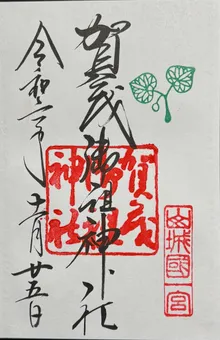 賀茂御祖神社
賀茂
御祖
神社
山城國
一宮
令和二年
十一月廿五日